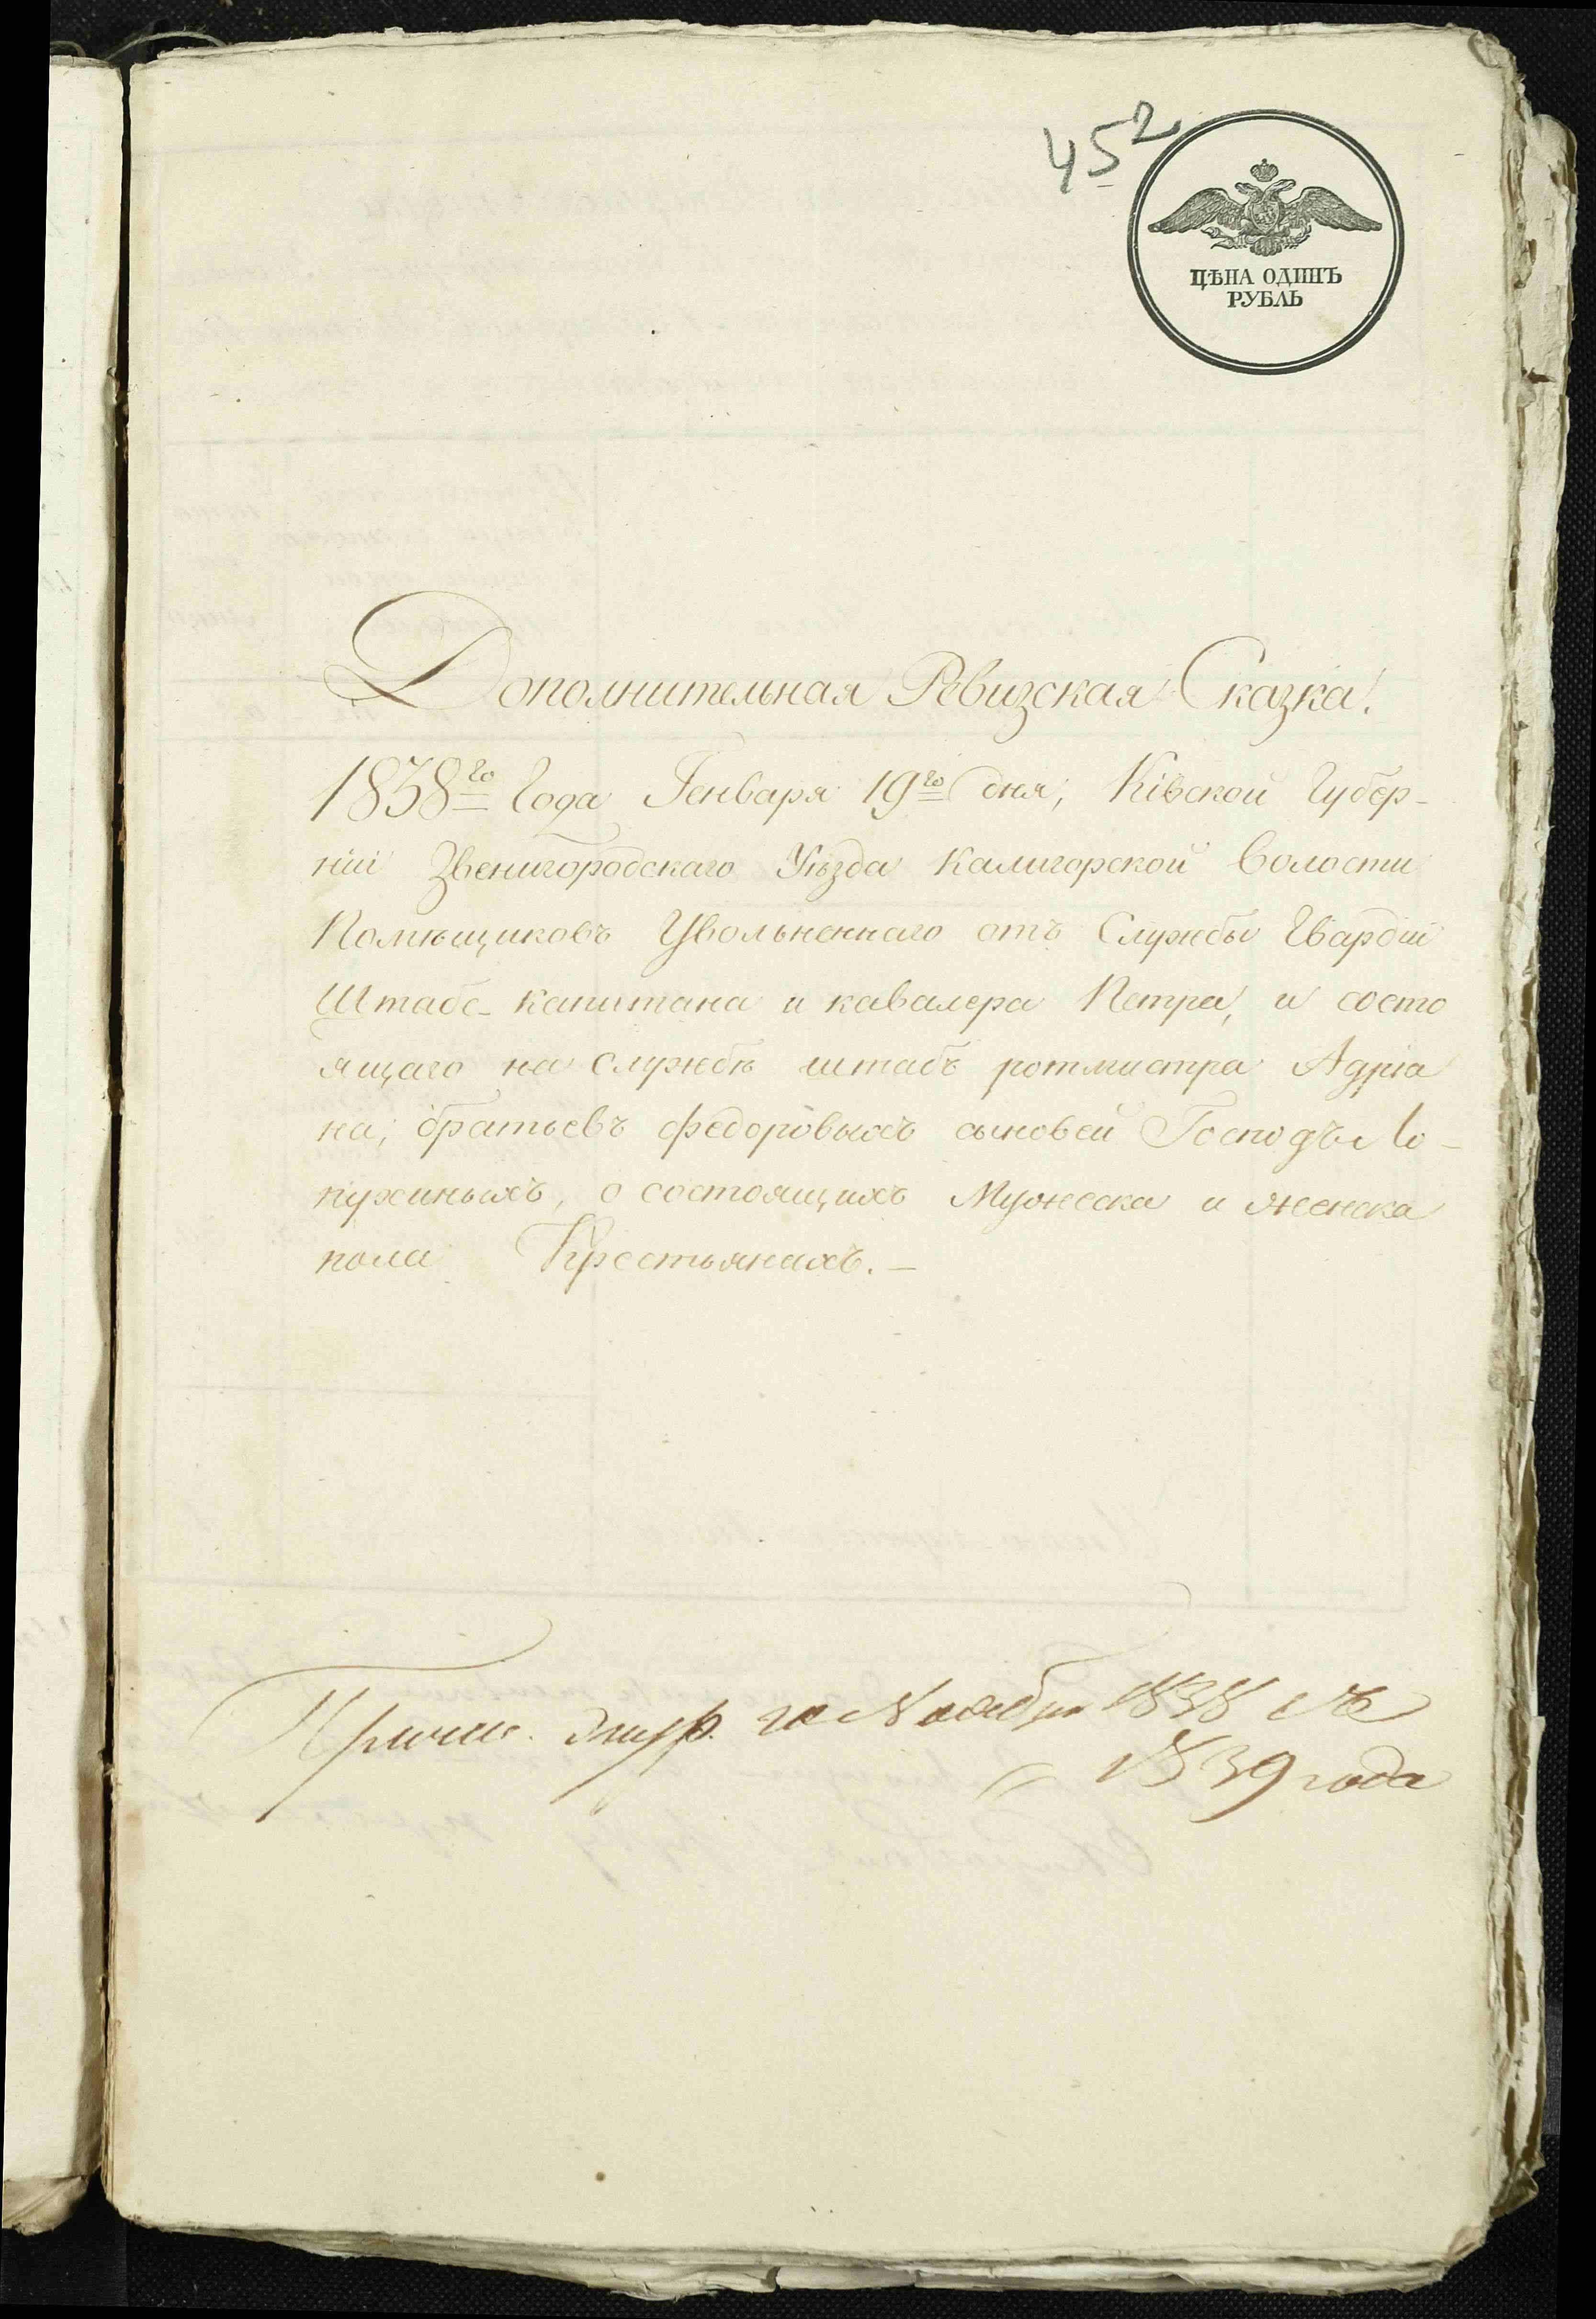 452
ЦѢНА ОДИНЪ
РУБЛЬ
Дополнительная Ревизская Сказка.
1838го Года Генваря 19го дня, Кіевской Губер-
ніи Звенигородскаго Уѣзда Калигорской Волости
Помѣщиковъ Увольненнаго отъ Службы Гвардіи
Штабс-капитана и кавалера Петра, и состо
ящаго на службѣ штабъ ротмистра Адріа
на, братьевъ Федоровыхъ сыновей Господъ Ло-
пухиныхъ, о состоящихъ Мужеска и женска
пола Крестьянахъ.-
Ноября 1838
1839 года